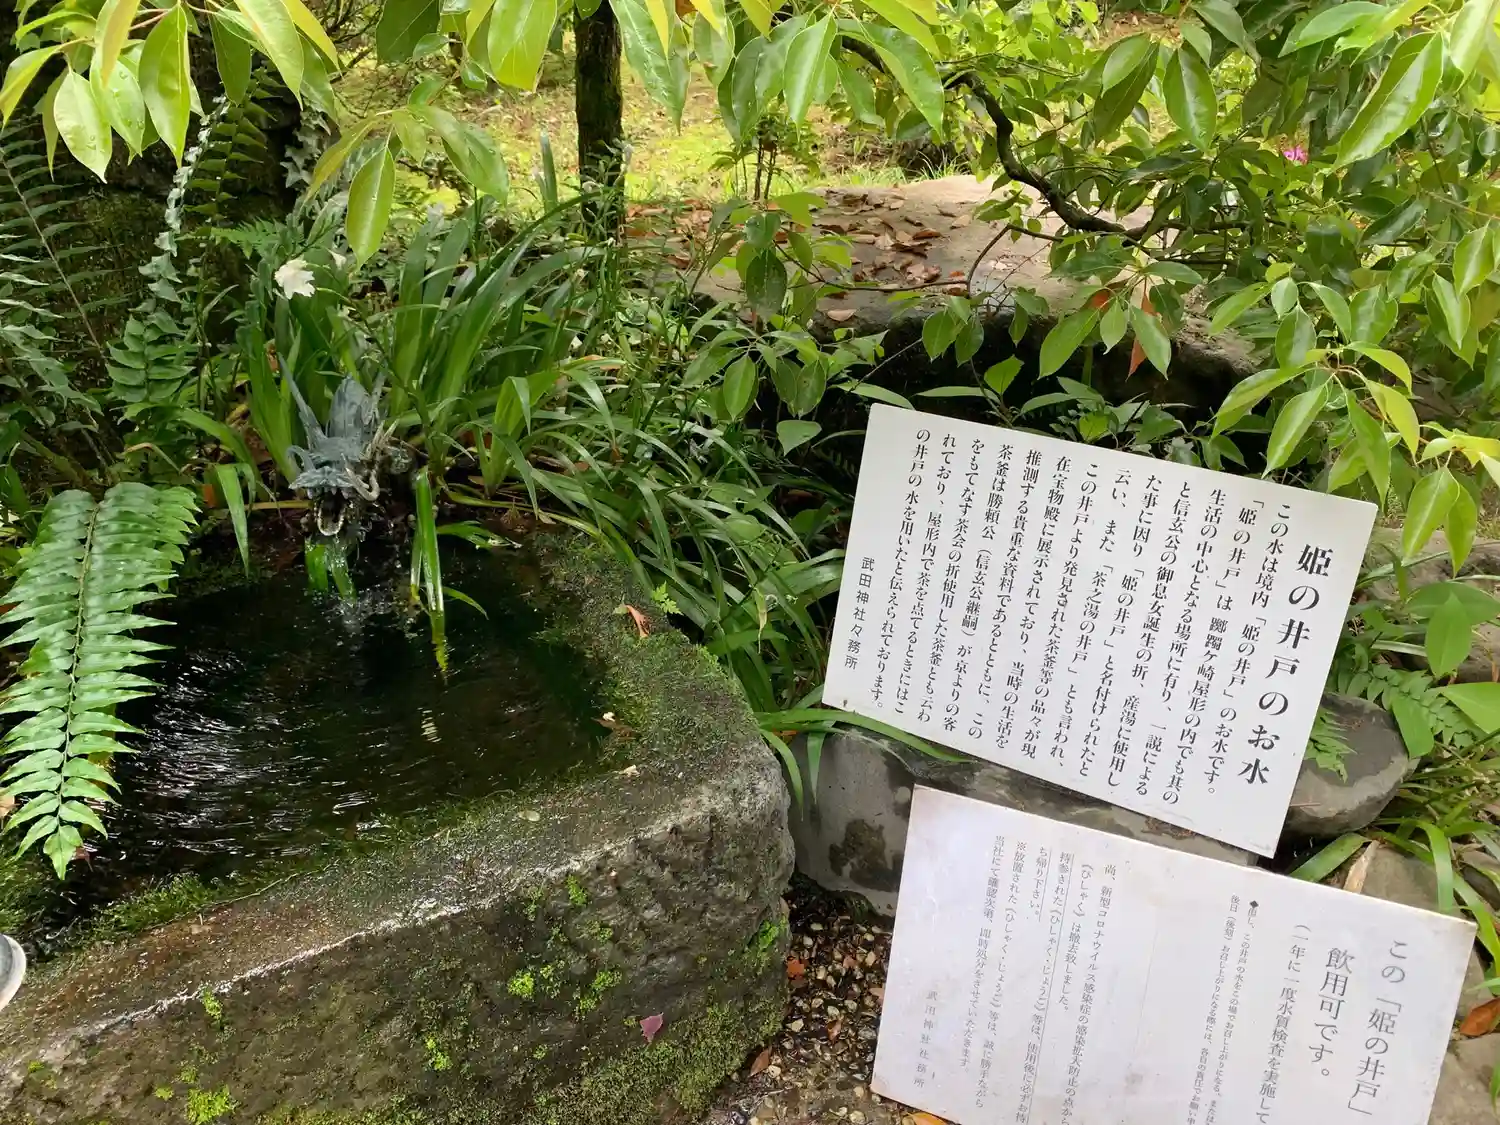 姫の井戸のお水
この水は境内「姫の井戸」のお水です。
「姫の井戸」は躑躅ヶ崎屋形の内でも其の
生活の中心となる場所に有り、一説による
と信玄公の御息女誕生の折、産湯に使用し
た事に因り「姫の井戸」と名付けられたと
云い、また「茶之湯の井戸」とも言われ、
この井戸より発見された茶釜等の品々が現
在宝物殿に展示されており、当時の生活を
推測する貴重な資料であるとともに、この
茶釜は勝頼公（信玄公継嗣）が京よりの客
をもてなす茶会の折使用した茶釜とも云わ
れており、屋形内で茶を点てるときにはこ
の井戸の水を用いたと伝えられております。
武田神社々務所
この「姫の井戸」
飲用可です。
（一年に一度水質検査を実施して
◆但し、この井戸の水をこの場でお召し上がりになる、または
後日（後刻）お召し上がりになる際には、各自の責任でお願い申
尚、新型コロナウイルス感染症の感染拡大防止の点から
《ひしゃく》は撤去致しました。
持参された《ひしゃく・じょうご》等は、使用後に必ずお持
ち帰り下さい。
※放置された《ひしゃく・じょうご》等は、誠に勝手ながら
当社にて確認次第、即時処分をさせていただきます。
武田神社社務所